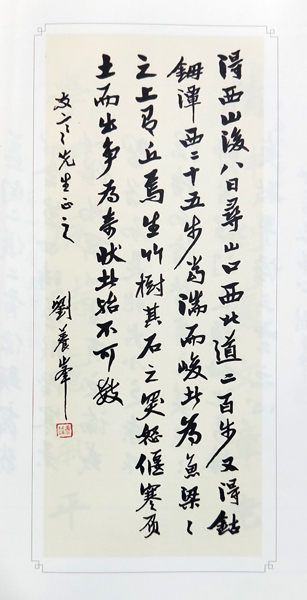 得西山後八日尋山口西北道二百步又得鈷
鉧潭西二十五步當湍而峻者為魚梁〻
之上有丘焉生竹樹其石之突怒偃蹇負
土而出爭為奇狀者殆不可數
先生正之
劉養峯